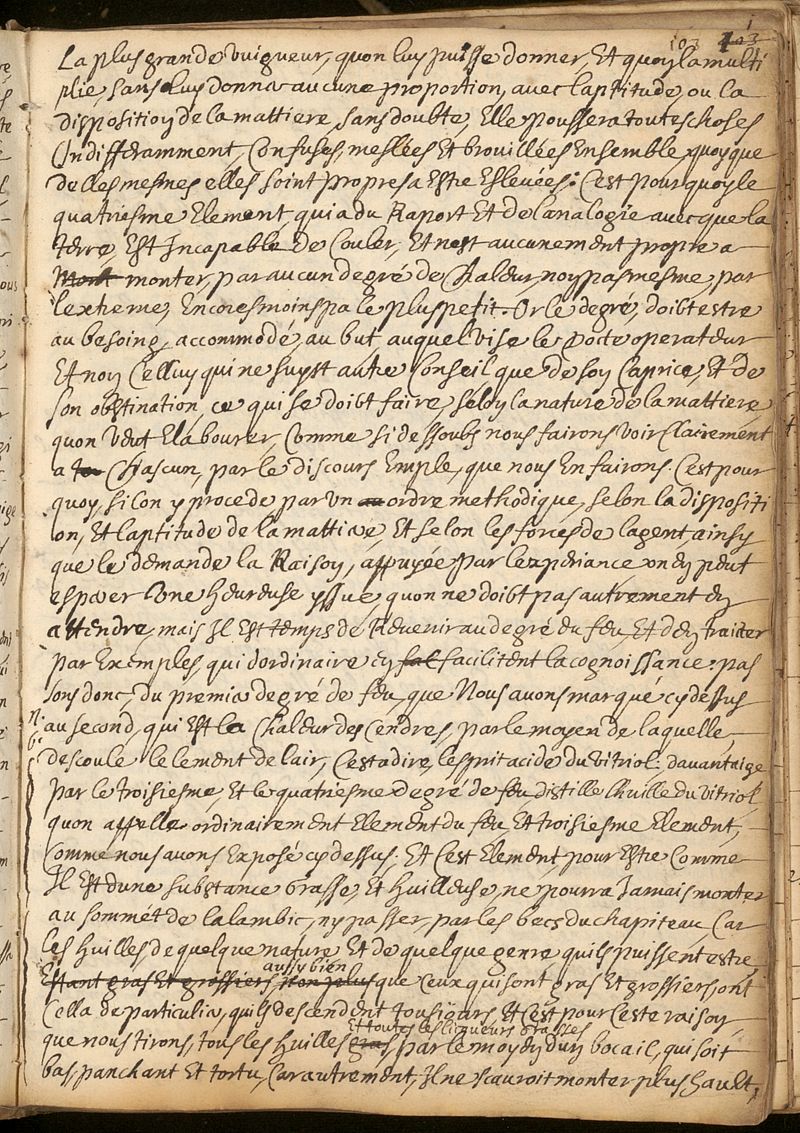 103 103 1
La plus grande vuigueur, quon luy puisse donner, Et quoy la multi
plie, sans luy donner aucune proportion, avec laptitude, ou la
dispositioy de la mattiere, sans doubte, Elle poussera toutes choses
Indifferamment, Confuses, meslées Et brouillées Ensemble quoyque
delles mesmes elles soint propres a Estre Eslevées: Cest pourquoy le
quatriesme Element, qui a du Raport Et de lanalogie avecque la
terre, Est Incapable de Couler, Et nest aucunement propre a
Mont monter, par aucun degré de Chaleur, noy pas mesme, par
lextreme, Encores moins pa le plus petit. Or le degré, doibt estre
au besoing, accommodé, au but auquel vise le docte operateur
Et noy Celluy qui ne suyst autre Conseil que de soy Caprice, Et de
son obstination, ce qui se doibt faire, seloy la nature de la mattiere
quon veut Elabourer, Comme si dessoubs nous fairons voir Clairement
a Chascun, par le discours Emple, que nous En fairons. Cest pour
quoy, si lon y procede par un au ordre methodique, selon la dispositi
on, Et laptitude de la mattiere, Et selon les forces de lagent ainsy
que le demande la Raisoy, appuyée par lexperiance on ey peut
esperer Une heureuse yssue, quon ne doibt pas autrement ey
attendre, mais Il Est temps de Revenir au degré du feu, Et dey traicter
par Exemples, qui dordinaire ey fal facilitent la cognoissance: pas
sons donc, du premier degré de feu, que Nous avons marqué cy dessus
au second, qui Est la Chaleur des Cendres, par le moyen de laquelle,
descoule lelement de lair, Cest a dire, lesprit acide du vitriol: davantaige
par le troisiesme, Et le quatriesme degré de feu, distille lhuille du vitriol
quon appelle ordinairement Element du feu, Et troisiesme Element,
Comme nous avons Exposé cy dessus. Et C'est Element, pour Estre Comme
Il Est dune substance Grasse, Et huilleuse, ne pourra Jamais monter
au sommét de lalambic, ny passer, par les becs du chapiteau Car
les huilles de quelque nature, Et de quelque genre quils puissent estre
aussy bien
Estant gras Et grossiers non plus que Ceux qui sont gras Et grossiers ont
Cella de particulier, quils descendent tousjours Et Cest pour Ceste raisoy
Et toutes les licqueurs Grasses
que nous tirons, tous les huilles gras par le moyey duy bocail, qui soit
bas panchant Et tortu, Car autrement, Il ne scauroit monter plus hault,